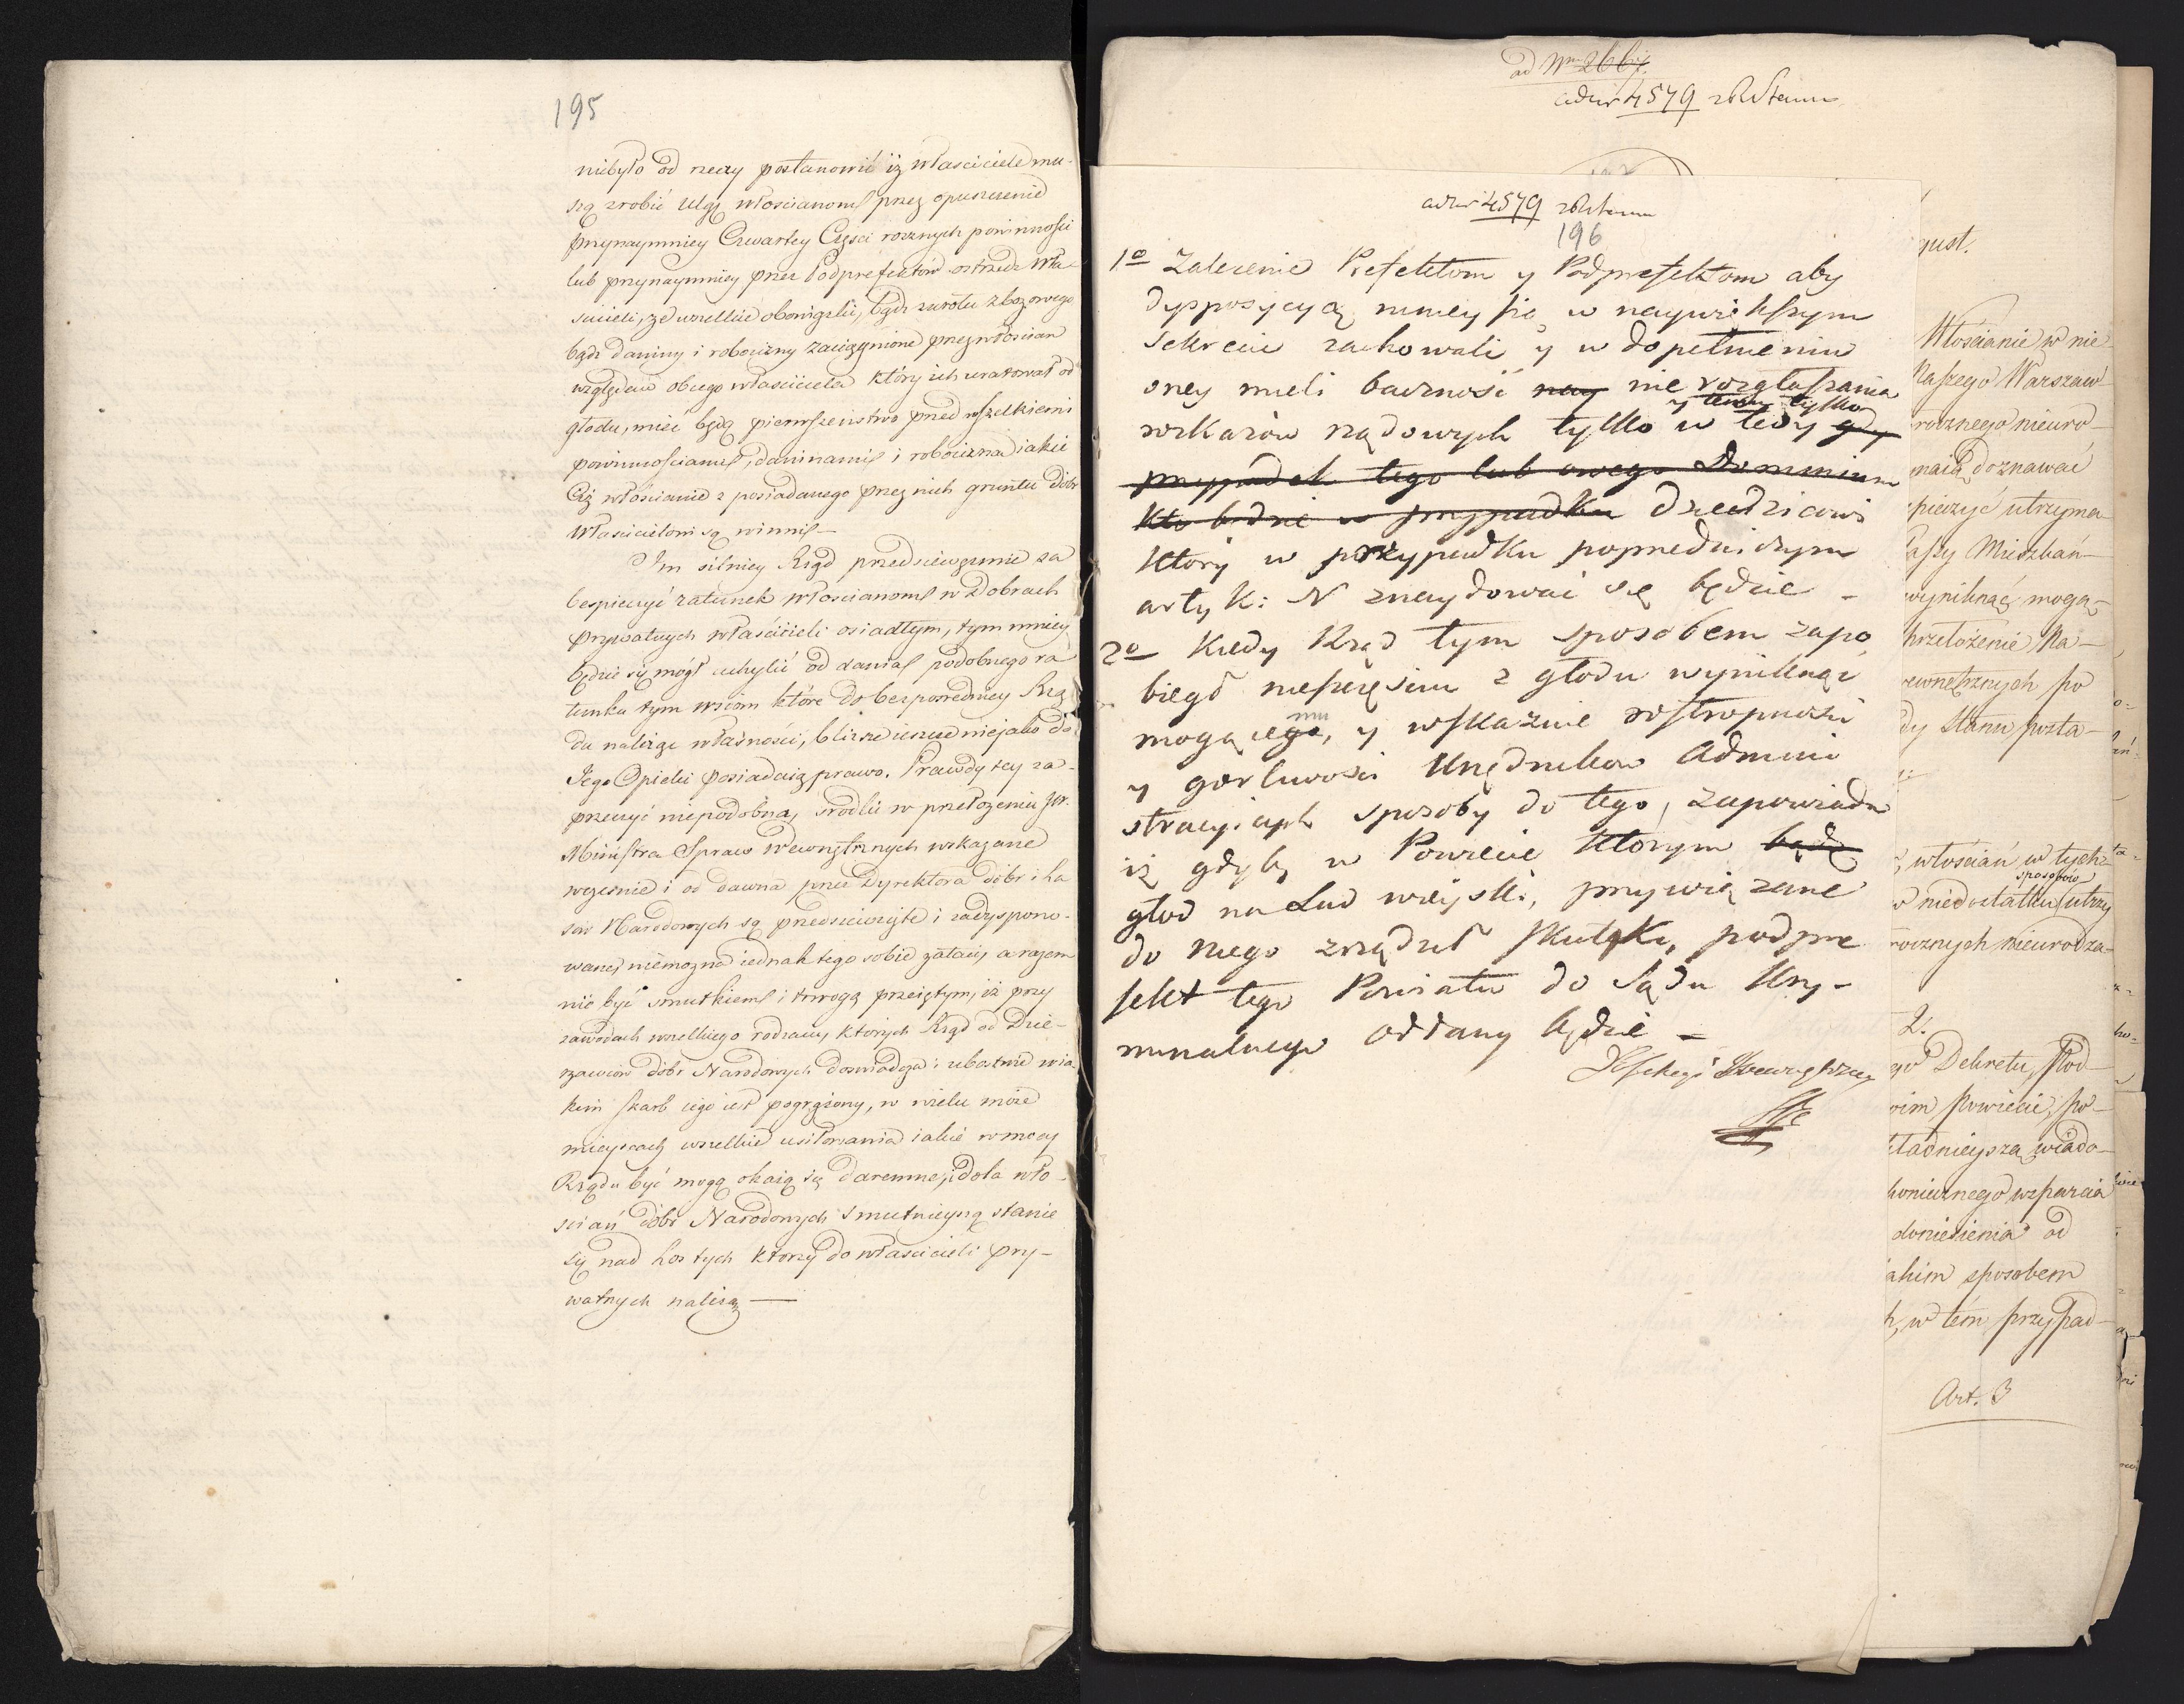 195
niebyło od rzeczy postanowić iż właściciele mu-
szą zrobić ulgę włoscianom przez opuszczenie
przynaymniey Czwartey Części rocznych powinności
lub przynaymniey przez Podprefektów ostrzedz wła-
scicieli, że wszelkie obowiązki, bądź zwrotu zbożowego
bądz daniny i robocizny zaciągnione przez włoscian
względem obcego właściciela który ich uratował od
głodu, mieć będą pierwszeństwo przed wszelkiemi
powinnościami, daninami i robocizną iakie
Ciż włościanie z posiadanego przez nich gruntu dóbr
Właścicielom są winni –
Im silniey Rząd przedsięweźmie za
bespieczyć ratunek włoscianom w Dobrach
prywatnych właścicieli osiadłym, tym mniey
będzie się mógł uchylić od dania podobnego ra
tunku tym wsiom które do bezpośredniey Rzą
du należąc własności, bliższe ieszcze nieiako do
Jego Opieki posiadaią prawo. Prawdy tey za-
przeczyć niepodobna, srodki w przełożeniu JW.
Ministra Spraw Wewnętrznych wskazane
wcześnie i od dawna przez Dyrektora dóbr i La
sów Narodowych są przedsięwzięte i zadyspono-
wane, niemożna iednak tego sobie zataić, a razem
nie być smutkiem i trwogą przeiętym, iż przy
zawodach wszelkiego rodzaiu, których Rząd od Dzie-
rzawców dóbr Narodowych doswiadcza i ubostwie w ia
kim skarb iego iest pogrążony, w wielu może
mieyscach wszelkie usiłowania iakie w mocy
Rządu być mogą okażą się daremne, i dola wło-
scian dóbr Narodowych smutnieyszą stanie
się nad Los tych którzy do właścicieli pry-
watnych należą —
ad Nrm 2667.
ad Nr 4579
ad Nr 4579
196
1o Zalecenie Prefektom y Podprefektom aby
dyspozycyą ninieyszę w naywiększym
sekrecie zachowali y w dopełnieniu
oney mieli baczność nay nie rozgłaszania
y temu tylko
rozkazów rządowych tylko w tedy gdy
przypadek tego lub owego Dominium
kto będzie w przypadku dziedzicowi
który w przypadku poprzedniczym
artyk: N znaydować się będzie –
2o Kiedy Rząd tym sposobem zapo
biegł nieszczęsciu z głodu wyniknąć
mu
mogącego, y wskazuie rostropności
y gorliwosci Urzędników Admini
stracyinych sposoby do tego, zapowiada
iż gdyby w Powiecie którym będz
głod na Lud wieyski, przywiązane
do niego zrządził skutki, podpre
fekt tego Powiatu do Sądu Kry-
minalnego oddany będzie –
gust.
Włościanie w nie
Naszego Warszaw
rocznego nieuro-
maią doznawać
pieczyć utrzyma
Kassy Mieszkań-
wyniknąć mogą-
przełożenie Na-
ewnętrznych po
dy Stanu posta-
włościan w tych
sposobów
w niedostatku utrzy
rocznych nieurodza-
2.
go Dekretu, Pod-
oim powiecie, po-
kładnieyszą wiado-
koniecznego wsparcia
doniesienia od
akim sposobem
h, w tém przypad-
Art. 3